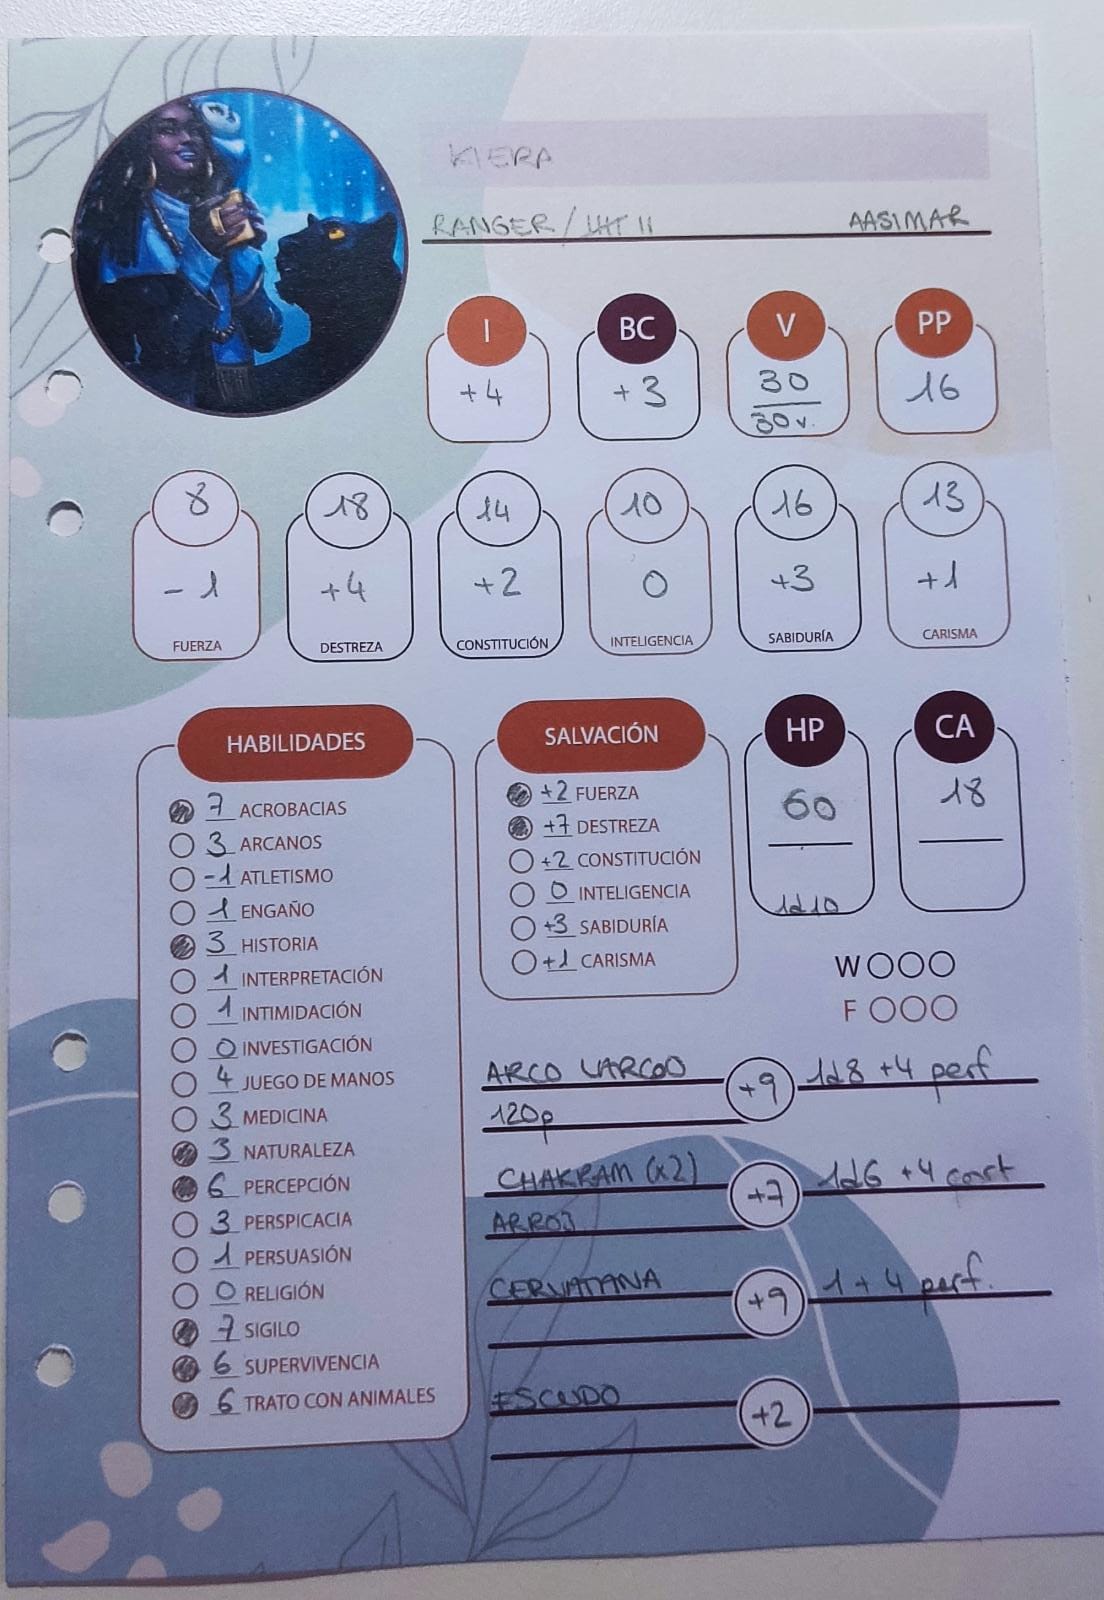 KIERA
RANGER / IIII II AASIMAR
I BC V PP
+4 +3 30 16
30v.
8 18 14 10 16 13
-1 +4 +2 0 +3 +1
FUERZA DESTREZA CONSTITUCIÓN INTELIGENCIA SABIDURÍA CARISMA
HABILIDADES
7 ACROBACIAS
3 ARCANOS
-1 ATLETISMO
1 ENGAÑO
3 HISTORIA
1 INTERPRETACIÓN
1 INTIMIDACIÓN
0 INVESTIGACIÓN
4 JUEGO DE MANOS
3 MEDICINA
3 NATURALEZA
6 PERCEPCIÓN
3 PERSPICACIA
1 PERSUASIÓN
0 RELIGIÓN
7 SIGILO
6 SUPERVIVENCIA
6 TRATO CON ANIMALES
SALVACIÓN
+2 FUERZA
+7 DESTREZA
+2 CONSTITUCIÓN
0 INTELIGENCIA
+3 SABIDURÍA
+1 CARISMA
HP CA
60 18
1d10
W
F
ARCO LARGO +9 1d8 +4 perf
120p
CHAKRAM (x2) +7 1d6 +4 cort
ARROJ
CERVATANA +9 1 + 4 perf.
ESCUDO +2